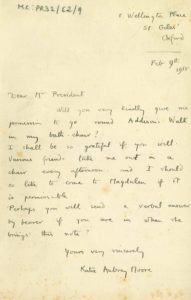 MC:PR32/C2/9
2 Wellington Place
St Giles'
Oxford
Feb 9th
Dear Mr President
Will you very kindly give me
permission to go round Addison's Walk
in my bath-chair?
I shall be so grateful if you will.
Various friends take me out in a
chair every afternoon and I should
so like to come to Magdalen if it
is permissible.
Perhaps you will send a verbal answer
by bearer if you are in when she
brings this note?
Yours very sincerely
Katie Aubrey Moore